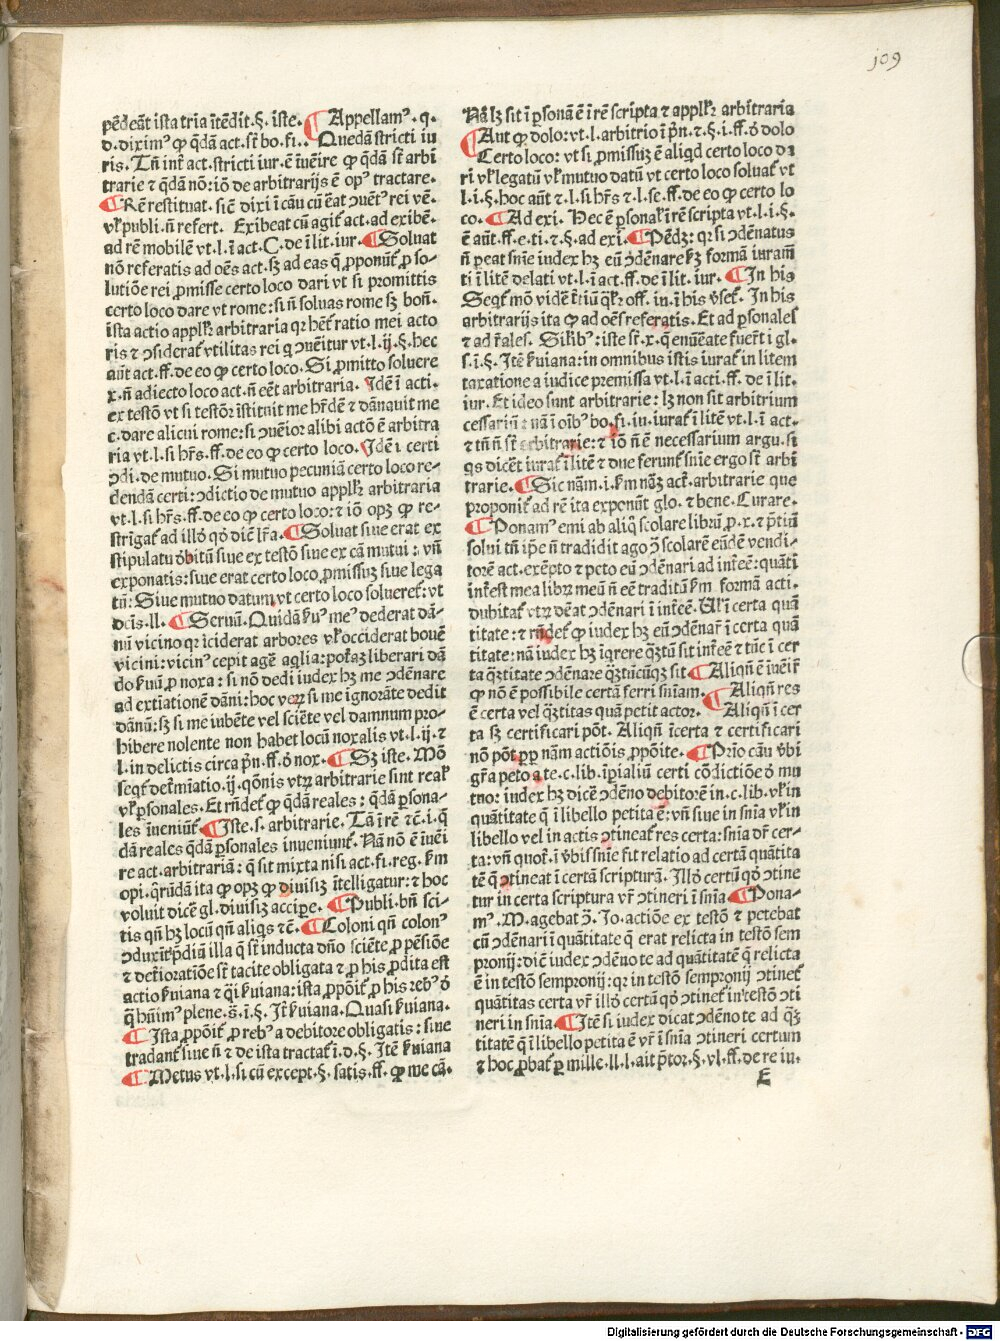 109
pēdeāt ista tria ītēdit.§. iste. ¶ Appellamꝰ. q.
d. diximꝰ ꝙ q̄dā act. st̄ bo. fi. . Quedā stricti iu
ris. Tn̄ int̄ act. stricti iur. ē īuēire ꝙ q̄dā st̄ arbi
trarie ⁊ q̄dā nō: iō de arbitrarijs ē opꝰ tractare.
¶ Rē restituat. sic̄ dixi ī cāu cū ēat ꝯuēt᷑ rei vē.
vl̓ publi. n̄ refert. Exibeat cū agit᷑ act. ad exibē.
ad rē mobilē vt. l. ī act. C. de ī lit. iur. ¶ Soluat
nō referatis ad oēs act. sꝫ ad eas q̄ ꝓponūt᷑ ꝓ so-
lutiōe rei ꝓmisse certo loco dari vt si promittis
certo loco dare vt rome: si n̄ soluas rome sꝫ bon̄.
ista actio appllr̄ arbitraria qr hēt᷑ ratio mei acto
ris ⁊ ꝯsiderat᷑ vtilitas rei q ꝯuēitur vt. l. ij. §. hec
aūt act. ff. de eo ꝙ certo loco. Si ꝓmitto soluere
x. n̄ adiecto loco act. n̄ eēt arbitraria. Idē ī acti.
ex testō vt si testōr īstituit me hr̄dē ⁊ dānauit me
c. dare alicui rome: si ꝯuēior alibi actō ē arbitra
ria vt. l. si hr̄s. ff. de eo ꝙ certo loco. Idē ī certi
ꝯdi. de mutuo. Si mutuo pecuniā certo loco re-
dendā certi: ꝯdictio de mutuo appllr̄ arbitraria
vt. l. si hr̄s. ff. de eo ꝙ certo loco: ⁊ iō opꝫ ꝙ re-
strīgat᷑ ad illō qō dic̄ lr̄a. ¶ Soluat siue erat ex
stipulatu ōbitū siue ex testō siue ex cā mutui: vn̄
exponatis: siue erat certo loco ꝓmissuꝫ siue lega
tū: Siue mutuo datum vt certo loco soluereт᷑: vt
dcis. ll. ¶ Seruū. Quidā ẜuꝰ meꝰ dederat dā-
nū vicino qr īciderat arbores vl̓ occiderat bouē
vicini: vicinꝰ cepit agē aqlia: pot̄as liberari dā
do ẜuū ꝓ noxa: si nō dedi iudex hꝫ me ꝯdēnare
ad extīatiōnē dāni: hoc veꝝ si me ignorāte dedit
dānū: sꝫ si me iubēte vel sciēte vel damnum pro-
hibere nolente non habet locū noxalis vt. l. ij. ⁊
l. in delictis circa pn̄. ff. ō nox. ¶ Sꝫ iste. Mō
seqt᷑ det̄mīatio. ij. qōnis vtꝝ arbitrarie sint reales
vl̓ ꝑsonales. Et rn̄det᷑ ꝙ q̄dā reales: q̄dā ꝑsona-
les īueniūt᷑. ¶ Iste. s. arbitrarie. Tā ī rē ⁊c̄. i. q̄
dā reales q̄dā ꝑsonales inueniunt᷑. Nā nō ē īuēi
re act. arbitrariā: q̄ sit mixta nisi act. fi. reg. ẜm
opi. qrūdā ita ꝙ opꝫ ꝙ diuisiꝫ ītelligatur: ⁊ hoc
voluit dicē gl. diuisiꝫ accipe. ¶ Publi. bn̄ sci-
tis qn̄ hꝫ locū qn̄ aliqs ⁊c̄. ¶ Coloni qn̄ colonꝰ
ꝯduxit p̄diū illa q̄ st̄ inducta dn̄o sciēte ꝓ pēsiōe
⁊ det̄ioratiōe st̄ tacite obligata ⁊ ꝓ his ꝓdita est
actio ẜuiana ⁊ q̄i ẜuiana: ista ꝓpōit᷑ ꝓ his rebꝰ ō
q̄ hn̄imꝰ plene. s̄. i. §. It̄ ẜuiana. Quasi ẜuiana.
¶ Ista ꝓpōit᷑ ꝓ rebꝰ a debitore obligatis: siue
tradant᷑ siue n̄ ⁊ de ista tractat᷑ ī. d. §. Itē ẜuiana
¶ Metus vt. l. si cū except. §. satis. ff. ꝙ me cā.
Nā lꝫ sit ī ꝑsonā ē ī rē scripta ⁊ appllr̄ arbitraria
¶ Aut ꝙ dolo: vt. l. arbitrio ī pn̄. ⁊. §. i. ff. ō dolo
Certo loco: vt si ꝓmissuꝫ ē aliqd certo loco da
ri vl̓ legatū vl̓ mutuo datū vt certo loco soluat᷑ vt
l. i. §. hoc aūt ⁊. l. si hr̄s ⁊. l. sc. ff. de eo ꝙ certo lo
co. ¶ Ad exi. Hec ē ꝑsonal̓ ī rē scripta vt. l. i. §.
ē aūt. ff. e. ti. ⁊. §. ad exi. ¶ Pēdꝫ: qr si ꝯdēnatus
n̄ ꝑeat sn̄ie iudex hꝫ eū ꝯdēnare ẜꝫ formā iuram̄
ti ī litē delati vt. l. ī act. ff. de ī lit. iur. ¶ In his
Seqt᷑ mō vidē t̄tiū qlr̄. off. iu. ī his v̄set᷑. In his
arbitrarijs ita ꝙ ad oēs referatis. Et ad ꝑsonales
⁊ ad r̄ales. Silib̄: iste st̄. x. q̄ enūēate fuer̄t ī gl.
s. i. §. Itē ẜuiana: in omnibus istis iurat᷑ in litem
taxatione a iudice premissa vt. l. ī acti. ff. de ī lit.
iur. Et ideo sunt arbitrarie: lꝫ non sit arbitrium
cessariū: nā ī oībꝰ bo. fi. iu. iurat᷑ ī litē vt. l. ī act.
⁊ tn̄ n̄ st̄ arbitrarie: ⁊ iō n̄ ē necessarium argu. si
qs dicēt iurat᷑ ī litē ⁊ due ferunt᷑ sn̄ie ergo st̄ arbi
trarie. ¶ Sic nām. i. ẜm nāꝫ act᷑. arbitrarie que
proponit᷑ ad rē ita exponūt glo. ⁊ bene. Curare.
¶ Ponamꝰ emi ab aliq̄ scolare librū ꝓ. x. ⁊ p̄tiū
solui tn̄ ip̄e n̄ tradidit ago ꝯ̄ scolarē eūdē vendi-
torē act. exēpto ⁊ peto eū ꝯdēnari ad intēē: quāti
intēst mea librꝫ meū n̄ eē traditū ẜm formā acti.
dubitat᷑ vtꝝ dēat ꝯdēnari ī intēē. Al̓ ī certa quā
titate: ⁊ rn̄det᷑ ꝙ iudex hꝫ eū ꝯdēnar̄ ī certa quā
titate: nā iudex hꝫ īqrere q̄ꝫtū sit intēē ⁊ tūc ī cer
ta q̄ꝫtitate ꝯdēnare q̄ꝫtūcūqꝫ sit. ¶ Aliqn̄ ē īuēir̄
ꝙ nō ē possibile certā ferri sn̄iam. ¶ Aliqn̄ res
ē certa vel q̄ꝫtitas quā petit actor. Aliqn̄ ī cer
ta sꝫ certificari pōt. Aliqn̄ īcerta ⁊ certificari
nō pōt ꝓp̄ nām actiōis ꝓpōite. ¶ Prīo cāu v̄bi
gr̄a peto a te. c. lib. īꝑialiū certi cōdictiōe ō mu
tuo: iudex hꝫ dicē ꝯdēno debitorē in. c. lib. vl̓ in
quātitate q̄ ī libello petita ē: vn̄ siue in sn̄ia vl̓ in
libello vel in actis ꝯtineat᷑ res certa: sn̄ia dr̄ cer-
ta: vn̄ quot᷑. ī v̄bis sn̄ie fit relatio ad certā quātita
tē q̄ ꝯtineat ī certā scripturā. Illō certū qō ꝯtine
tur in certa scriptura vr̄ ꝯtineri ī sn̄ia ¶ Pona-
mꝰ. M. agebat ꝯ̄. Jo. actiōe ex testō ⁊ petebat
cū ꝯdēnari ī quātitate q̄ erat relicta in testō sem
pronij: dic̄ iudex ꝯdēno te ad quātitatē q̄ relicta
ē in testō sempronij: qr in testō sempronij ꝯtinet᷑
quātitas certa vr̄ illō certū qō ꝯtinet᷑ in testō ꝯti
neri in sn̄ia. ¶ Itē si iudex dicat ꝯdēno te ad q̄ꝫ
titatē q̄ ī libello petita ē vr̄ ī sn̄ia ꝯtineri certum
⁊ hoc ꝓbat᷑ ꝑ mille. ll. l. ait p̄tor. §. vl. ff. de re iu.
E
Digitalisierung gefördert durch die Deutsche Forschungsgemeinschaft - DFG